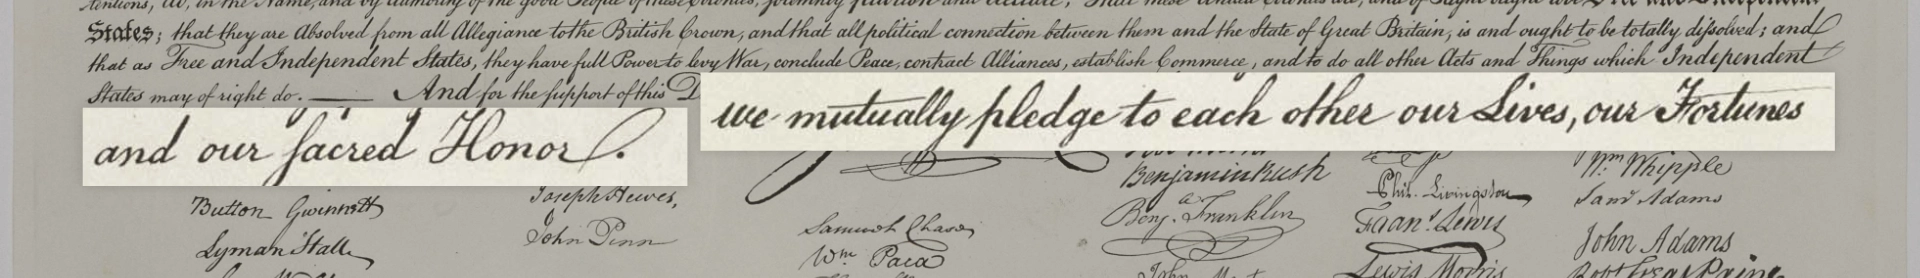 States; that they are Absolved from all Allegiance to the British Crown, and that all political connection between them and the State of Great Britain, is and ought to be totally dissolved; and
that as Free and Independent States, they have full Power to levy War, conclude Peace, contract Alliances, establish Commerce, and to do all other Acts and Things which Independent
States may of right do. —— And for the support of this D
we mutually pledge to each other our Lives, our Fortunes
and our sacred Honor.
Button Gwinnett
Lyman Hall
Joseph Hewes,
John Penn
Samuel Chase
Wm Paca
Benjamin Rush
Benj. Franklin
John Mort
Phil. Livingston
Fran's Lewis
Lewis Morris
Wm Whipple
Sam'l Adams
John Adams
Rob't Treat Paine